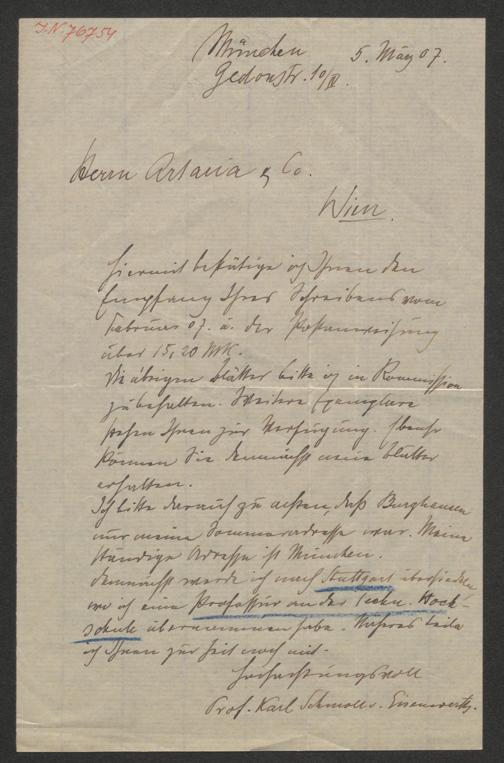 I.N. 76754
München 5. März 07.
Gedonstr. 10/II.
Herrn Artaria & Co.
Wien.
Hiermit bestätige ich Ihnen den
Empfang Ihres Schreibens vom
Februar 07. u. der Postanweisung
über 15,20 Mk.
Die übrigen Blätter bitte ich in Kommission
zu behalten. Weitere Exemplare
stehen Ihnen zur Verfügung. Ebenso
können Sie demnächst neue Blätter
erhalten.
Ich bitte darauf zu achten, daß Burghausen
nur meine Sommeradresse war. Meine
ständige Adresse ist München.
Demnächst werde ich nach Stuttgart übersiedeln
wo ich eine Professur an der techn. Hoch-
schule übernommen habe. Näheres teile
ich Ihnen zur Zeit noch mit.
Hochachtungsvoll
Prof. Karl Schmoll v. Eisenwerth.